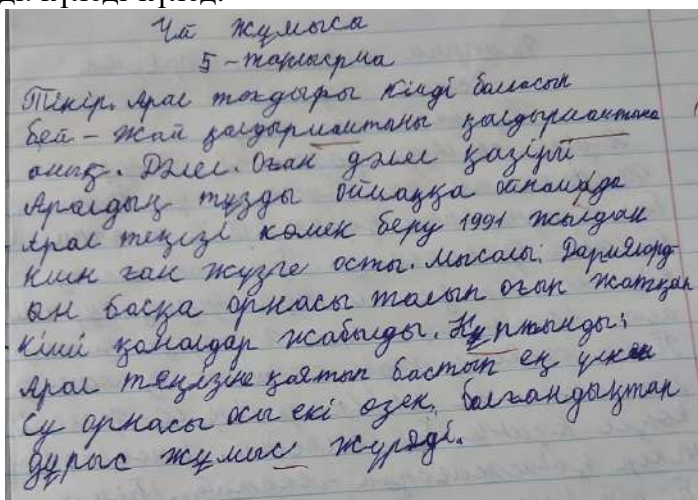 Үй жұмысы
5-тапсырма
Пікір. Арал тағдыры кімді болмасын
бей-жай қалдырмаитыны қалдырмаитына
анық. Дәлел. Оған дәлел қазіргі
Аралдың тұзды оймаққа айналуда
Арал теңізі көмек беру 1991 жылдан
кшин ған жүзге осты. Мысалы: Дариялорд-
ын басқа арнасы толып оғып жатқан
кіші қаналдар жабылды. Құртынды:
Арал теңезіне қаятып бастып ең үлкен
су орнасы осы екі өзек. болғандықтан
дұрыс жұмыс жүреді.